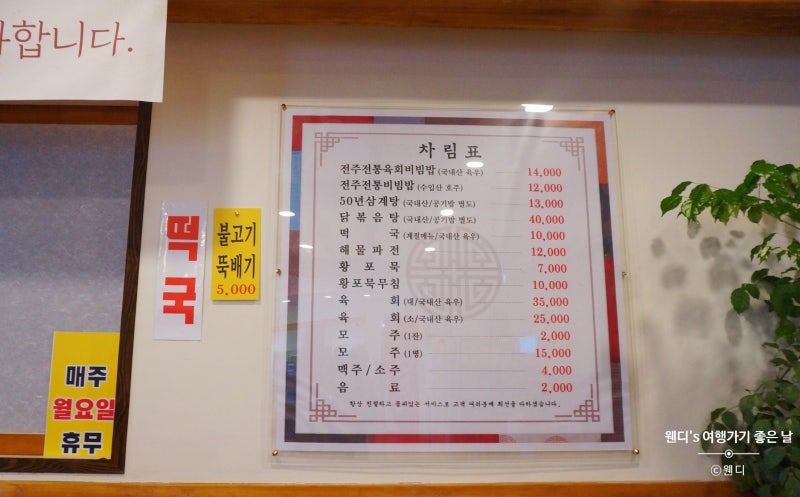 합니다.
떡국
불고기
뚝배기
5,000
매주
월요일
휴무
차림표
전주전통육회비빔밥 (국내산 육우) 14,000
전주전통비빔밥 (수입산 호주) 12,000
50년삼계탕 (국내산/공기밥 별도) 13,000
닭볶음탕 (국내산/공기밥 별도) 40,000
떡국 (계절메뉴/국내산 육우) 10,000
해물파전 12,000
황포묵 7,000
황포묵무침 10,000
육회 (대/국내산 육우) 35,000
육회 (소/국내산 육우) 25,000
모주 (1잔) 2,000
모주 (1병) 15,000
맥주/소주 4,000
음료 2,000
항상 친절하고 품위있는 서비스로 고객 여러분께 최선을 다하겠습니다.
웬디's 여행가기 좋은 날
©웬디